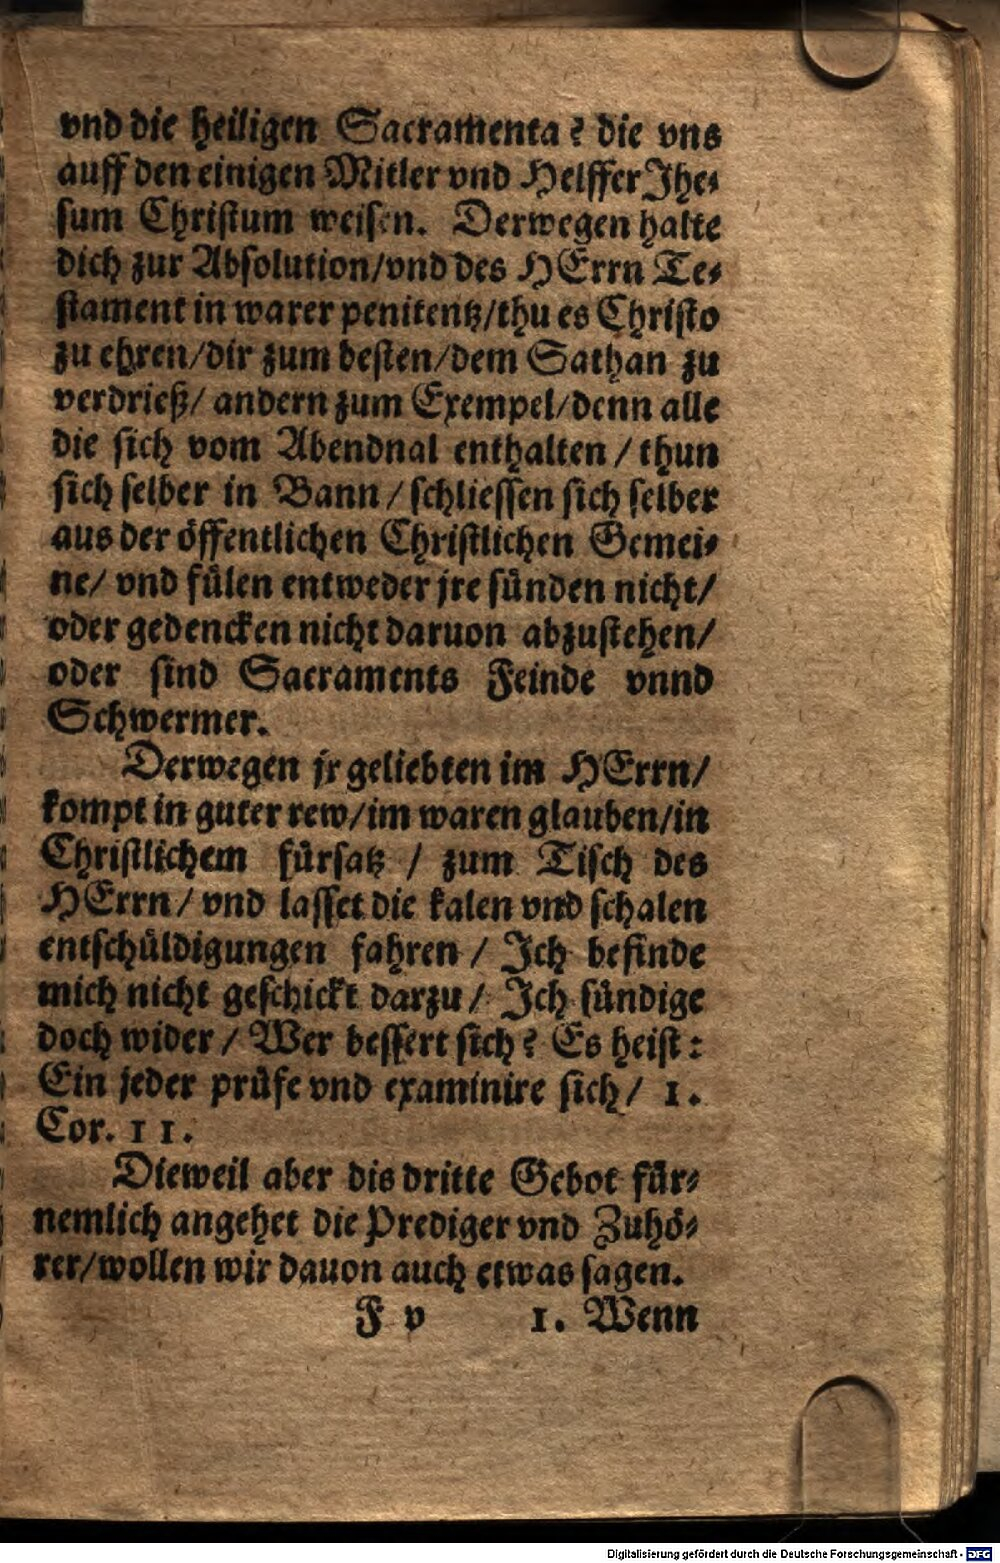 vnd die heiligen Sacramenta? die vns
auff den einigen Mitler vnd Helffer Jhe⸗
sum Christum weisen. Derwegen halte
dich zur Absolution/vnd des HErrn Te⸗
stament in warer penitentz/thu es Christo
zu ehren/dir zum besten/dem Sathan zu
verdrieß/ andern zum Exempel/denn alle
die sich vom Abendnal enthalten / thun
sich selber in Bann / schliessen sich selber
aus der öffentlichen Christlichen Gemei⸗
ne/ vnd fülen entweder jre sünden nicht/
oder gedencken nicht daruon abzustehen/
oder sind Sacraments Feinde vnnd
Schwermer.
Derwegen jr geliebten im HErrn/
kompt in guter rew/im waren glauben/in
Christlichem fürsatz / zum Tisch des
HErrn / vnd lasset die kalen vnd schalen
entschüldigungen fahren / Ich befinde
mich nicht geschickt darzu / Ich sündige
doch wider / Wer bessert sich? Es heist:
Ein jeder prüfe vnd examinire sich/ 1.
Cor. 11.
Dieweil aber dis dritte Gebot für⸗
nemlich angehet die Prediger vnd Zuhö⸗
rer/wollen wir dauon auch etwas sagen.
F v 1. Wenn
Digitalisierung gefördert durch die Deutsche Forschungsgemeinschaft - DFG